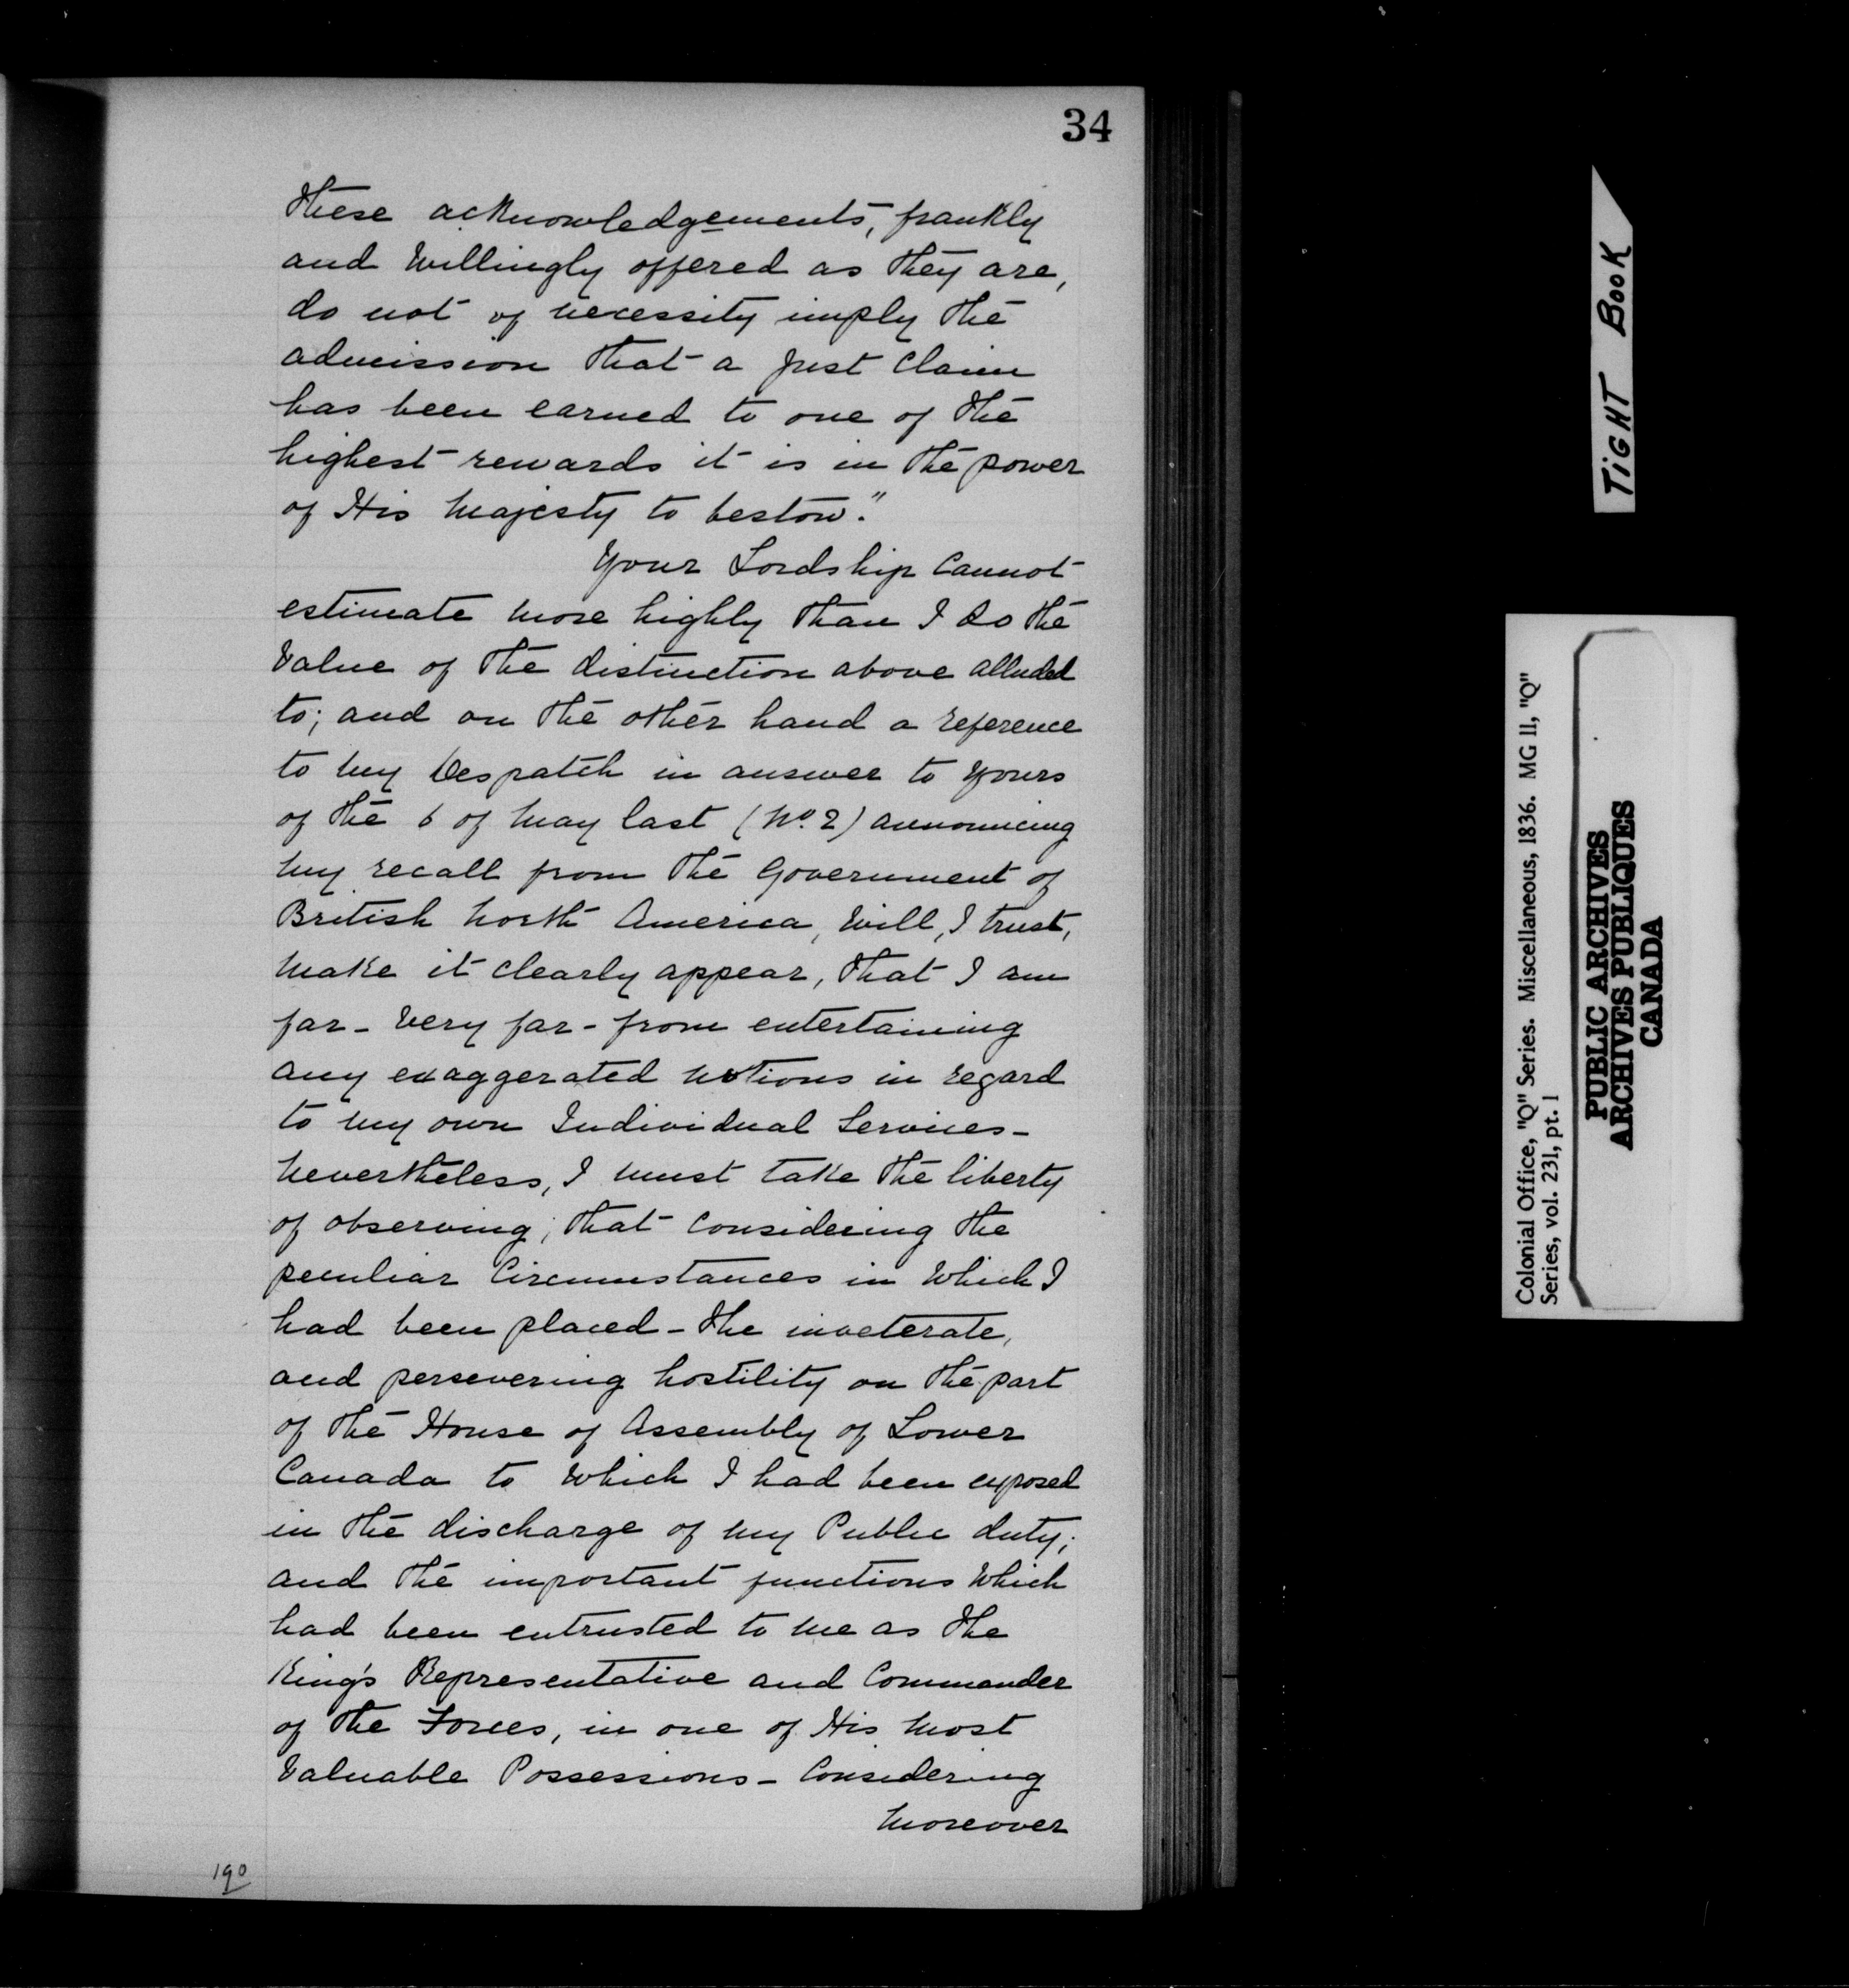 34
these acknowledgements, frankly
and willingly offered as they are,
do not of necessity imply the
admission that a just claim
has been earned to one of the
highest rewards it is in the power
of His Majesty to bestow."
Your Lordship cannot
estimate more highly than I do the
value of the distinction above alluded
to; and on the other hand a reference
to my Despatch in answer to yours
of the 6 of May last (No. 2) announcing
my recall from the Government of
British North America, will, I trust,
make it clearly appear, that I am
far - very far - from entertaining
any exaggerated notions in regard
to my own Individual Services -
Nevertheless, I must take the liberty
of observing; that considering the
peculiar circumstances in which I
had been placed - the inveterate,
and persevering hostility on the part
of the House of Assembly of Lower
Canada to which I had been exposed
in the discharge of my Public duty;
and the important functions which
had been entrusted to me as the
King's Representative and Commander
of the Forces, in one of His most
Valuable Possessions - Considering
Moreover
190
TIGHT BOOK
Colonial Office, "Q" Series. Miscellaneous, 1836. MG 11, "Q"
Series, vol. 231, pt. 1
PUBLIC ARCHIVES
ARCHIVES PUBLIQUES
CANADA